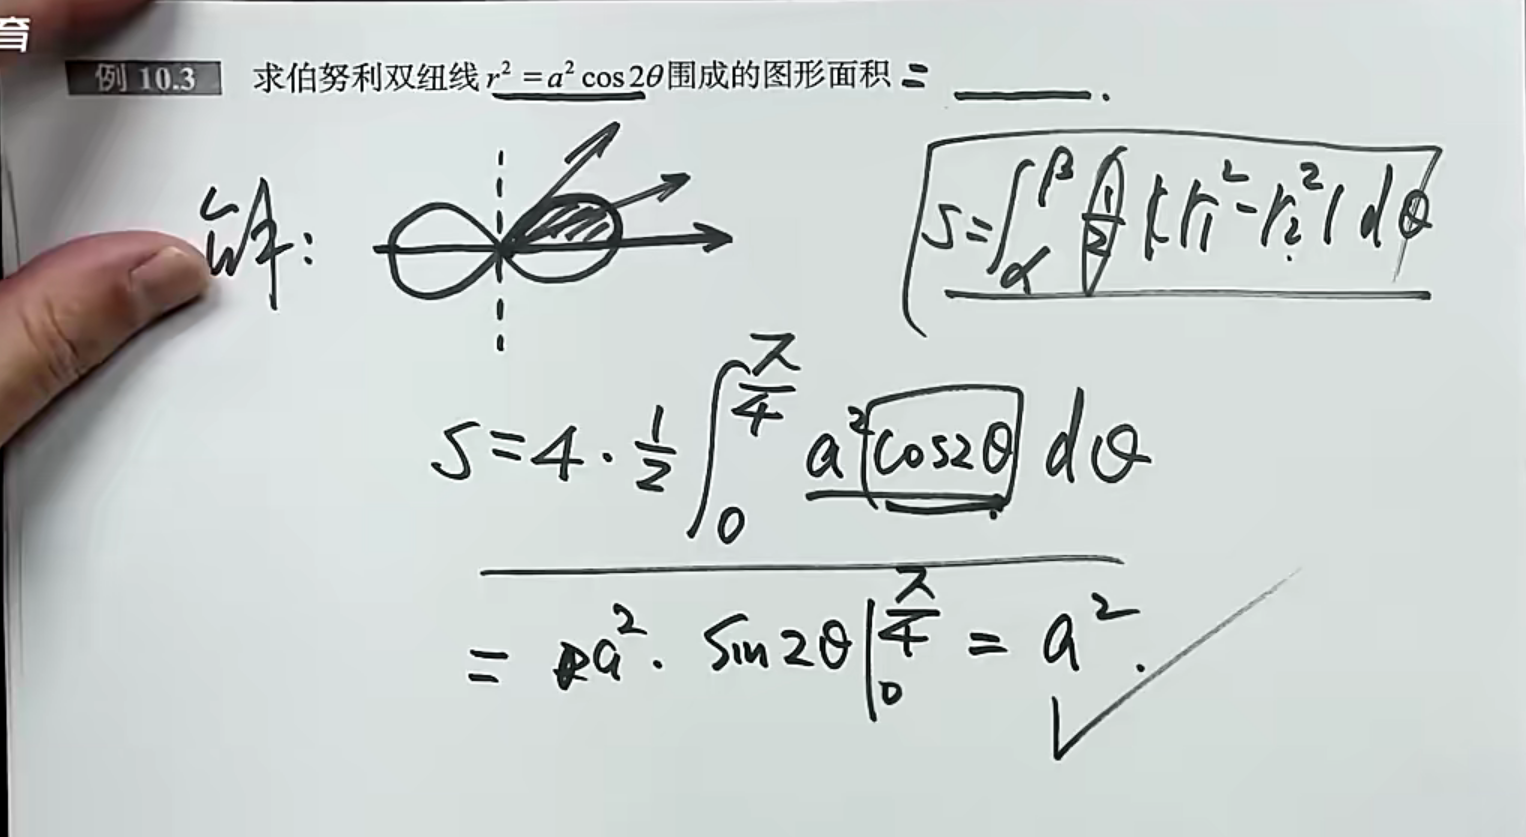 育
例 10.3 求伯努利双纽线 r² = a² cos2θ 围成的图形面积 = ____.
解:
S = ∫_α^β 1/2 |r₁² - r₂²| dθ
S = 4 · 1/2 ∫_0^{π/4} a² cos2θ dθ
= a² · sin2θ |_0^{π/4} = a².